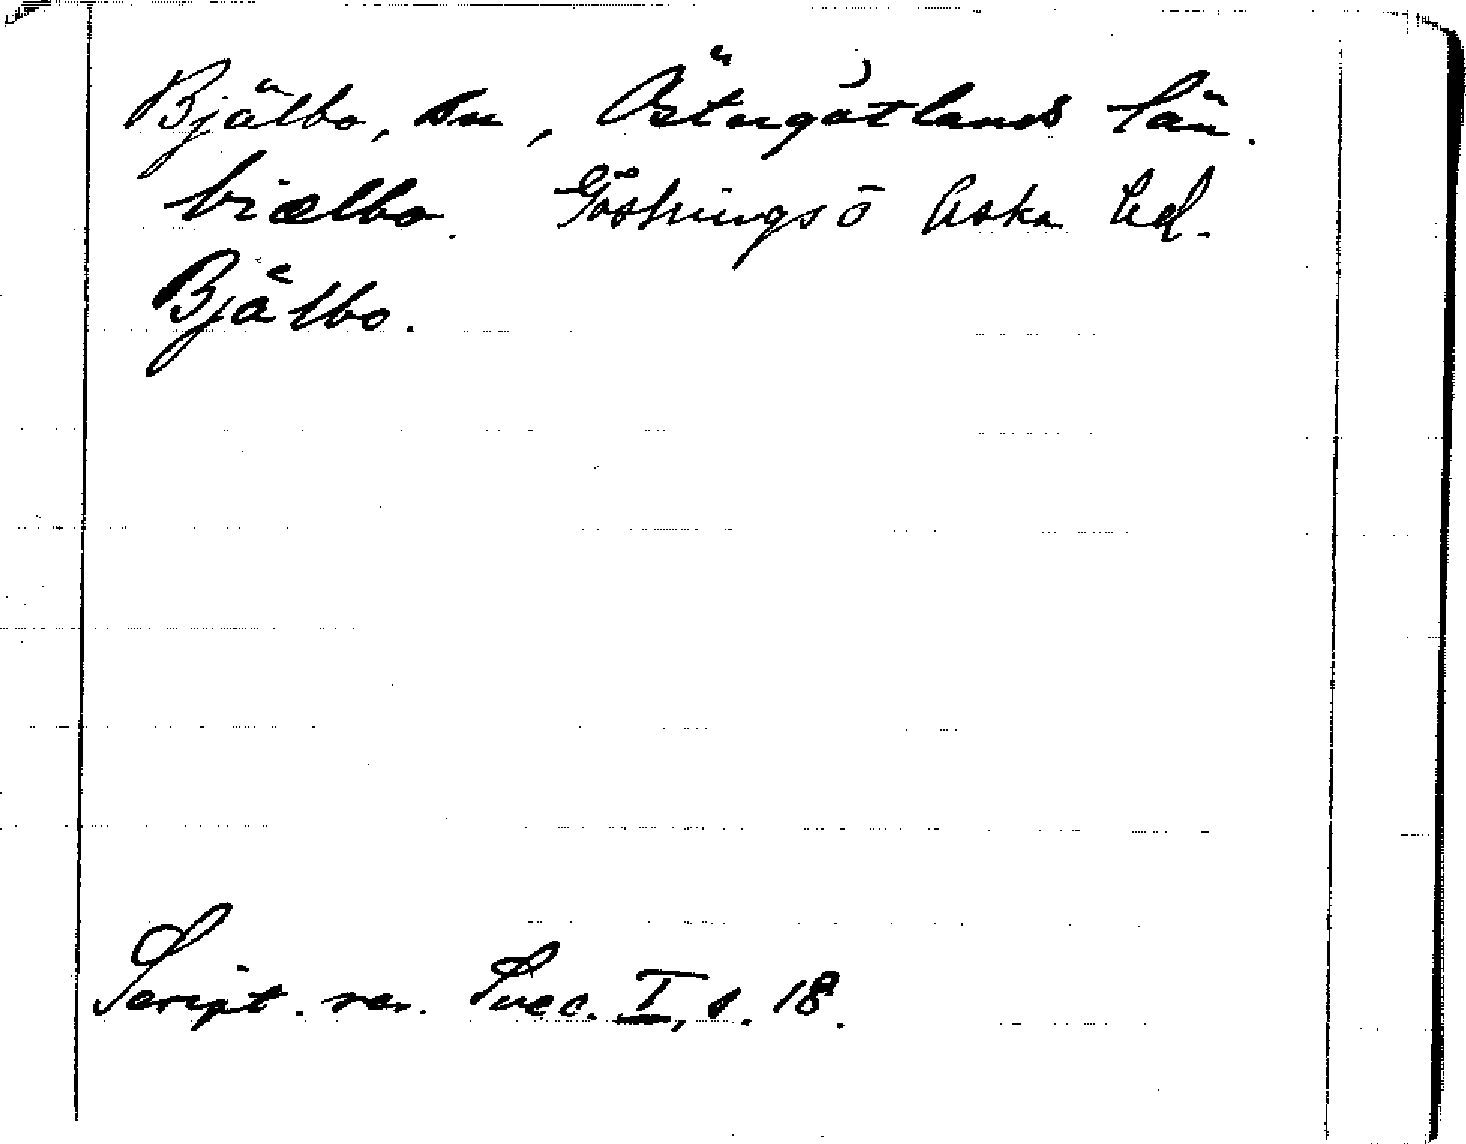 Bjälbo, sn, Östergötlands län.
biælbo. Göstrings o Aska hd.
Bjälbo.
Script. rer. Svec. I, s. 18.